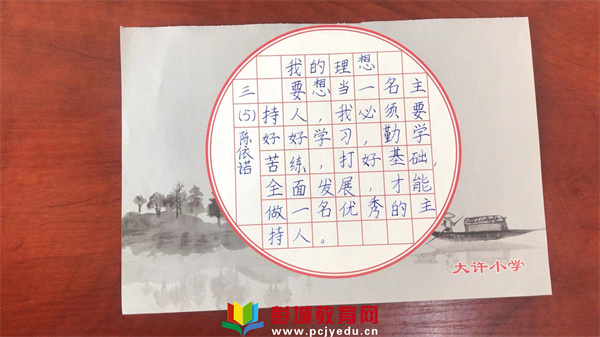 我的理想
要想当一名主
持人，我必须要
好好学习，勤学
苦练，打好基础，
全面发展，才能
做一名优秀的主
持人。
三(5)陈依诺
大许小学
彭城教育网
www.pcjyedu.cn